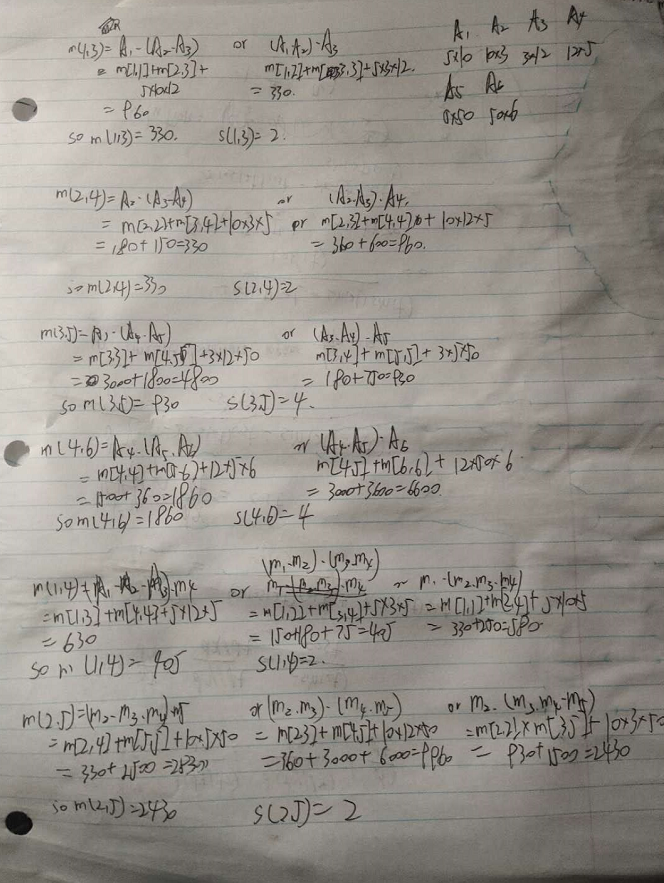 m(1,3) = A₁-(A₂-A₃) or (A₁A₂)-A₃
= m[1,1]+m[2,3]+ m[1,2]+m[3,3]+5x3x12
5x10x12 = 330.
= 960
so m(1,3) = 330. s(1,3) = 2.
A₁ A₂ A₃ A4
5x10 10x3 3x12 12x5
A5 A6
5x50 50x6
m(2,4) = A₂·(A₃-A4) or (A₂·A₃)·A4.
= m[2,2]+m[3,4]+10x3x5 or m[2,3]+m[4,4]+10x12x5
= 180+150=330 = 360+600=960.
so m(2,4)=330 s(2,4)=2
m(3,5)=A₃·(A4-A5) or (A₃.A4)-A5
= m[3,3]+m[4,5]+3x12x50 m[3,4]+m[5,5]+3x5x50
= 3000+1800=4800 = 180+750=930
so m(3,5)= 930 s(3,5)=4.
m(4,6)=A4-(A5.A6) or (A4-A5)·A6
= m[4,4]+m(5-6)+12x5x6 m[4,5]+m[6,6]+12x50x6
= 1500+360=1860 = 3000+3600=6600.
so m(4,6)=1860 s(4,6)=4
(m₁-m₂)·(m₃.m4)
m(1,4)+(A₁-A₂-A₃)·m4 or m₁-(m₂.m₃)·m4 or m₁·(m₂.m₃.m4)
=m[1,3]+m[4,4]+5x12x5 =m[1,2]+m[3,4]+5x3x5 =m[1,1]+m[2,4]+5x10x5
= 630 = 150+180+75=405 = 330+250=580.
so m(1,4)= 405 s(1,4)=2.
m(2,5)=(m₂-m₃.m4)·m5 or (m₂.m₃)-(m4.m5) or m₂.(m₃.m4-m5)
=m[2,4]+m[5,5]+10x5x50 = m[2,3]+m[4,5]+10x12x50 =m[2,2]xm[3,5]+10x3x50
= 330+2500=2830 =360+3000+6000=9960 = 930+1500=2430
so m(2,5)=2430 s(2,5)= 2